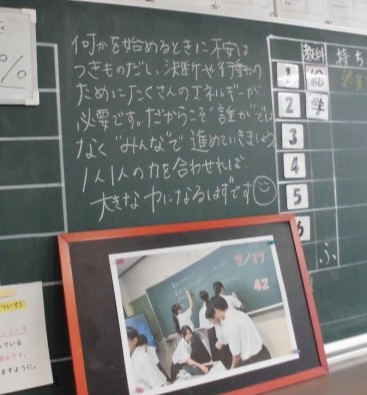 何かを始めるときに不安は
つきものだし、決断や行動の
ためにたくさんのエネルギーが
必要です。だからこそ"誰か"では
なく"みんな"で進めていきましょう
1人1人の力を合わせれば
大きな力になるはずです
%
教科 持ち
1 総
2 学
3
4
5
6
9/17
42
ついて
ている
ますように。